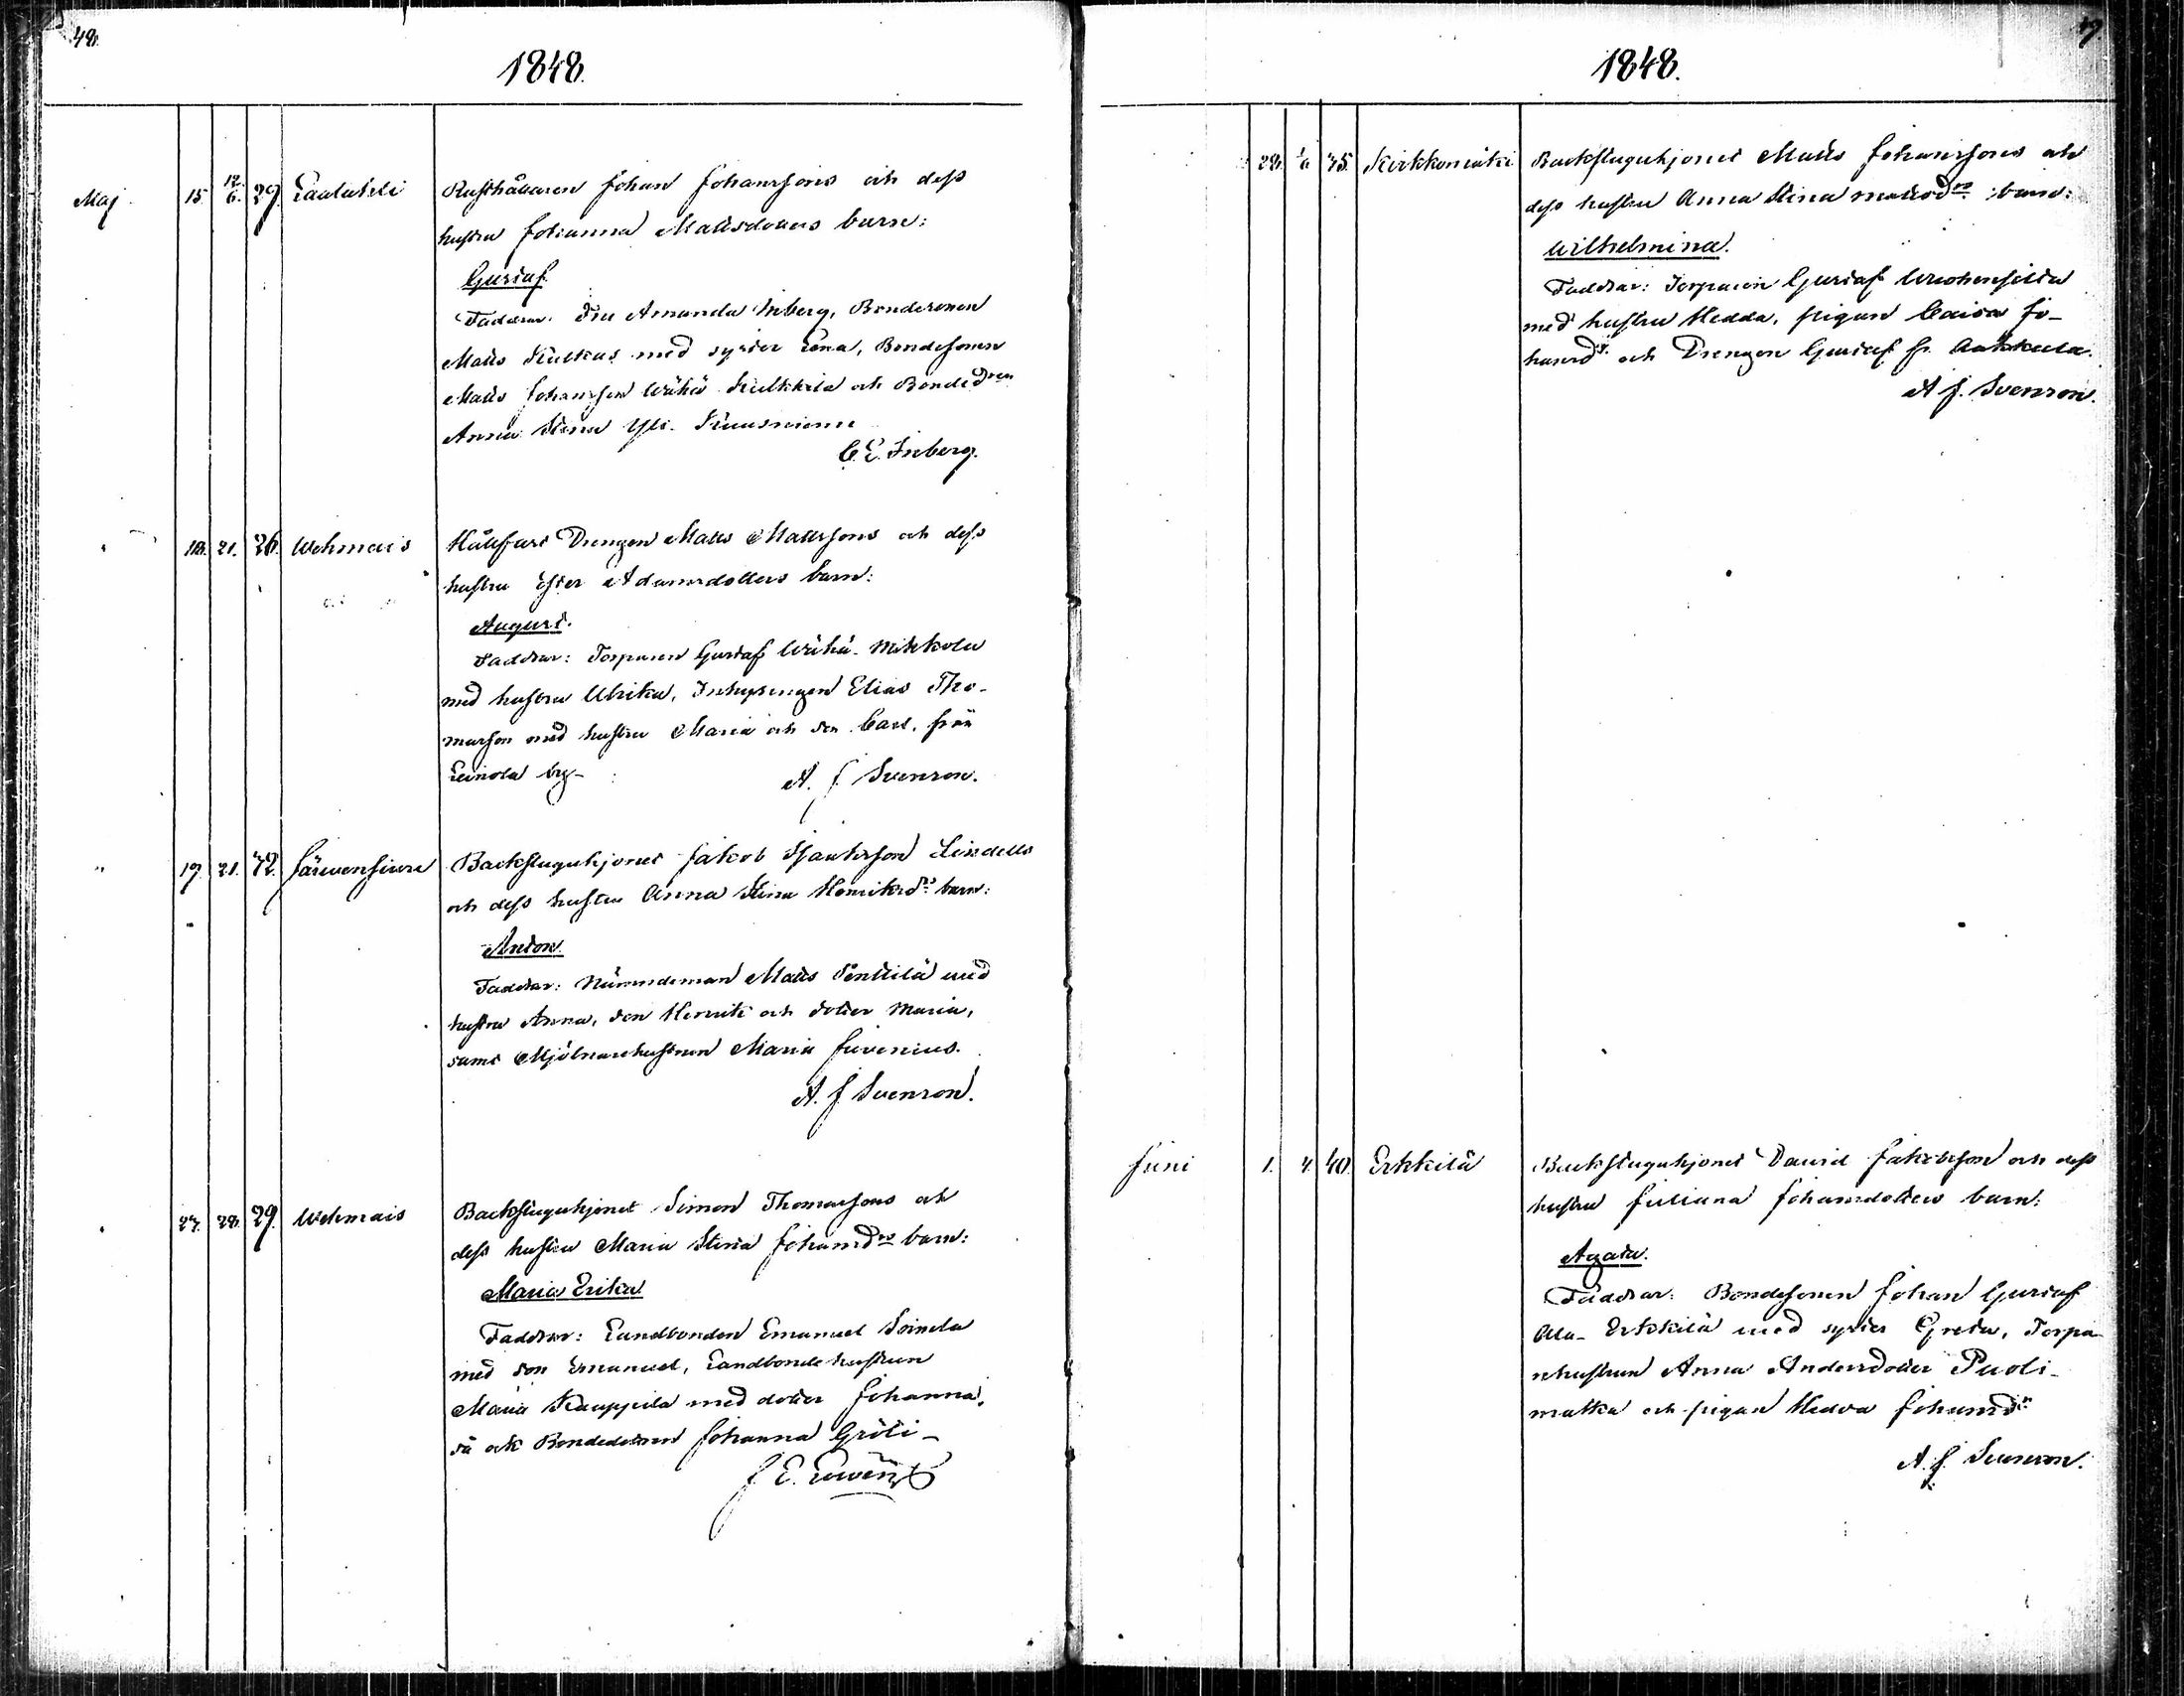 48.
1848.
Maj 15. 12/6. 29. Laalahti Rusthållaren Johan Johanssons och dess
hustru Johanna Mattsdotters barn:
Gustaf.
Faddrar: Fru Amanda Inberg, Bondesonen
Matts Kulkas med syster Lena, Bondesonen
Matts Johansson Wähä Kulkkila och Bonded:ren
Anna Stina Yli-Kuusniemi
C. E. Inberg.
" 18. 21. 26. Wehmais Hållkarls Drengen Matts Mattssons och dess
hustru Ester Adamsdotters barn:
August.
Faddrar: Torparen Gustaf Wähä-Mikkola
med hustru Ulrika, Inhysingen Elias Tho-
masson med hustru Maria och son Carl, från
Leinola by-
A. J. Svenson.
" 19. 21. 42. Järwensiwu Backstuguhjonet Jakob Isaaksson Lindells
och dess hustru Anna Stina Henriksd:rs barn:
Anton.
Faddrar: Nämndeman Matts Penttilä med
hustru Anna, son Henrik och dotter Maria,
samt Mjölnarehustrun Maria Juvenius.
A. J. Svenson.
" 27. 28. 29. Wehmais Backstuguhjonet Simon Thomassons och
dess hustru Maria Stina Johansd:rs barn:
Maria Erika
Faddrar: Landbonden Emanuel Soinola
med son Emanuel, Landbondehustrun
Maria Kauppila med dotter Johanna,
så ock Bondedottren Johanna Gröti-
J. E.
1848.
28. 1/6 35. Kirkkomäki Backstuguhjonet Matts Johanssons och
dess hustru Anna Stina Mattsd:rs barn:
Wilhelmina.
Faddrar: Torparen Gustaf Wuohensilta
med hustru Hedda, pigan Caisa Jo-
hansd:r och Drengen Gustaf fr. Aakkula.
A. J. Svenson.
Juni 1. 4. 40. Erkkilä Backstuguhjonet David Jakobsson och dess
hustru Juliana Johansdotters barn:
Agata.
Faddrar: Bondesonen Johan Gustaf
Ala-Erkkilä med syster Greta, Torpa-
rehustrun Anna Andersdotter Puoli-
matka och pigan Hedva Johansd:r
A. J. Svenson.